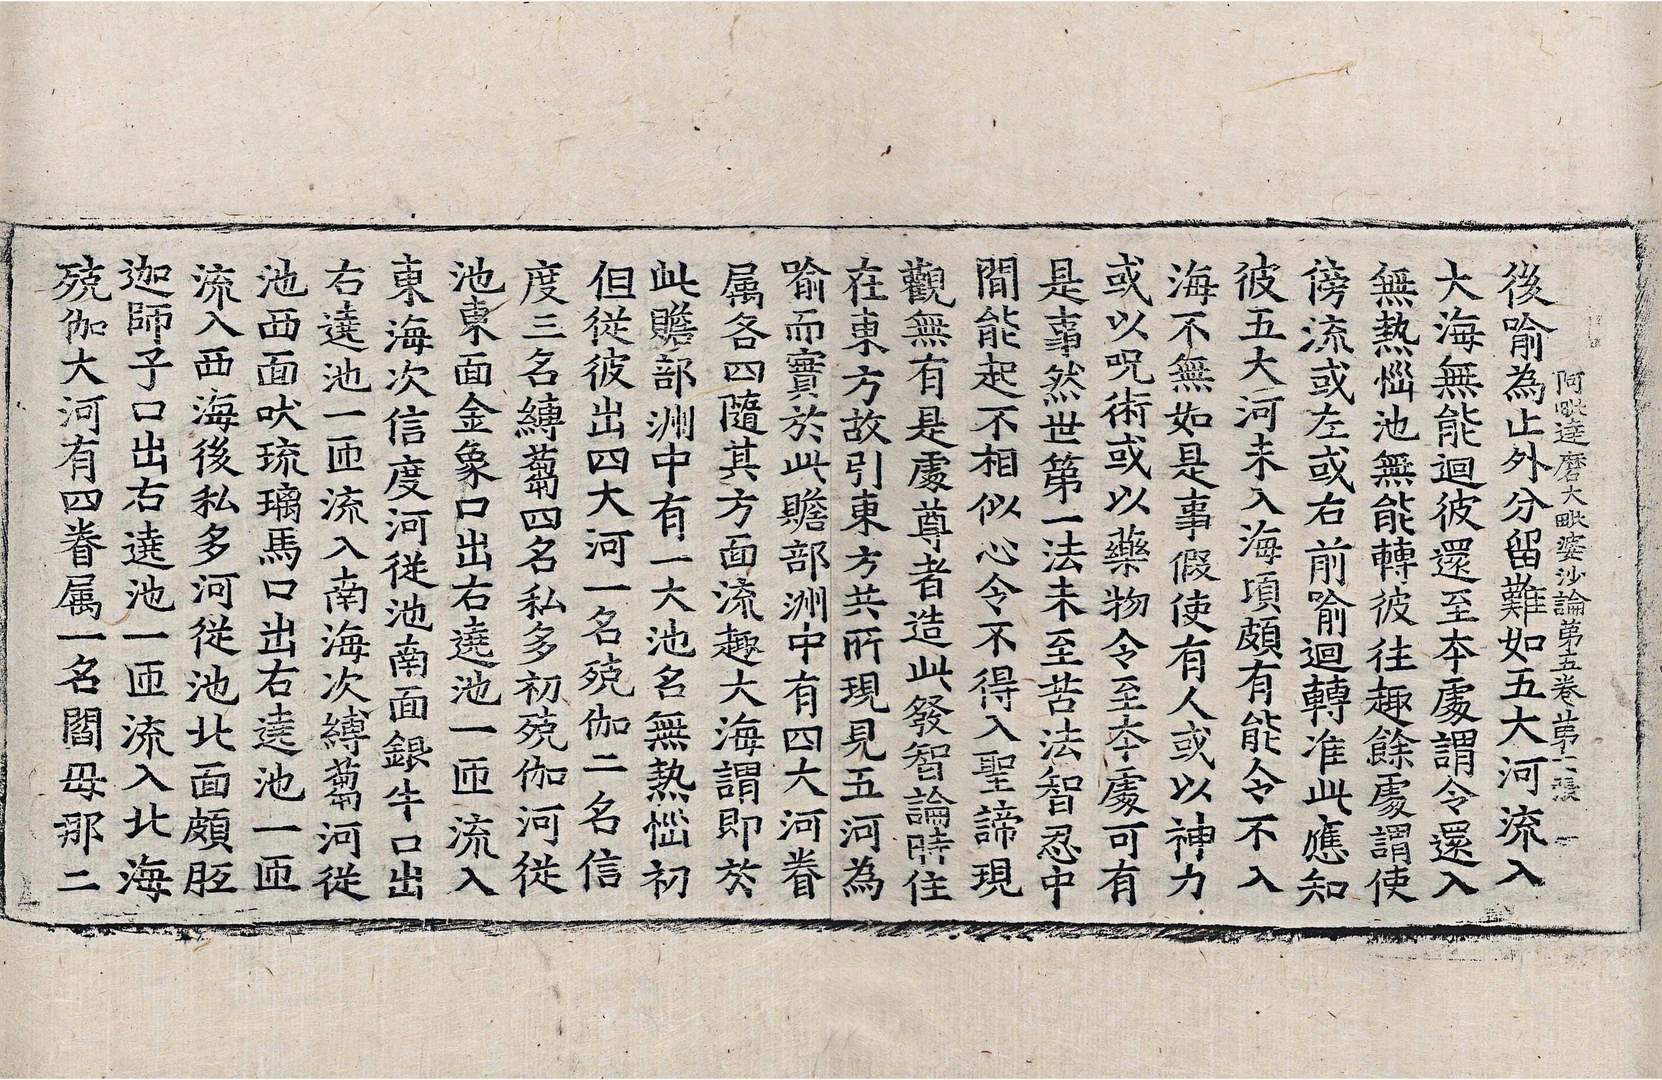 阿毗達磨大毗婆沙論第五卷 第 張
後喻為止外分留難如五大河流入
大海無能迴彼還至本處謂令還入
無熱惱池無能轉彼往趣餘處謂使
傍流或左或右前喻迴轉准此應知
彼五大河未入海頃頗有能令不入
海不無如是事假使有人或以神力
或以呪術或以藥物令至本處可有
是事然世第一法未至苦法智忍中
間能起不相似心令不得入聖諦現
觀無有是處尊者造此發智論時住
在東方故引東方共所現見五河為
喻而實於此贍部洲中有四大河眷
属各四隨其方面流趣大海謂即於
此贍部洲中有一大池名無熱惱初
但從彼出四大河一名殑伽二名信
度三名縛蒭四名私多初殑伽河從
池東面金象口出右遶池一匝流入
東海次信度河從池南面銀牛口出
右遶池一匝流入南海次縛蒭河從
池西面吠琉璃馬口出右遶池一匝
流入西海後私多河從池北面頗胝
迦師子口出右遶池一匝流入北海
殑伽大河有四眷属一名閻母那二